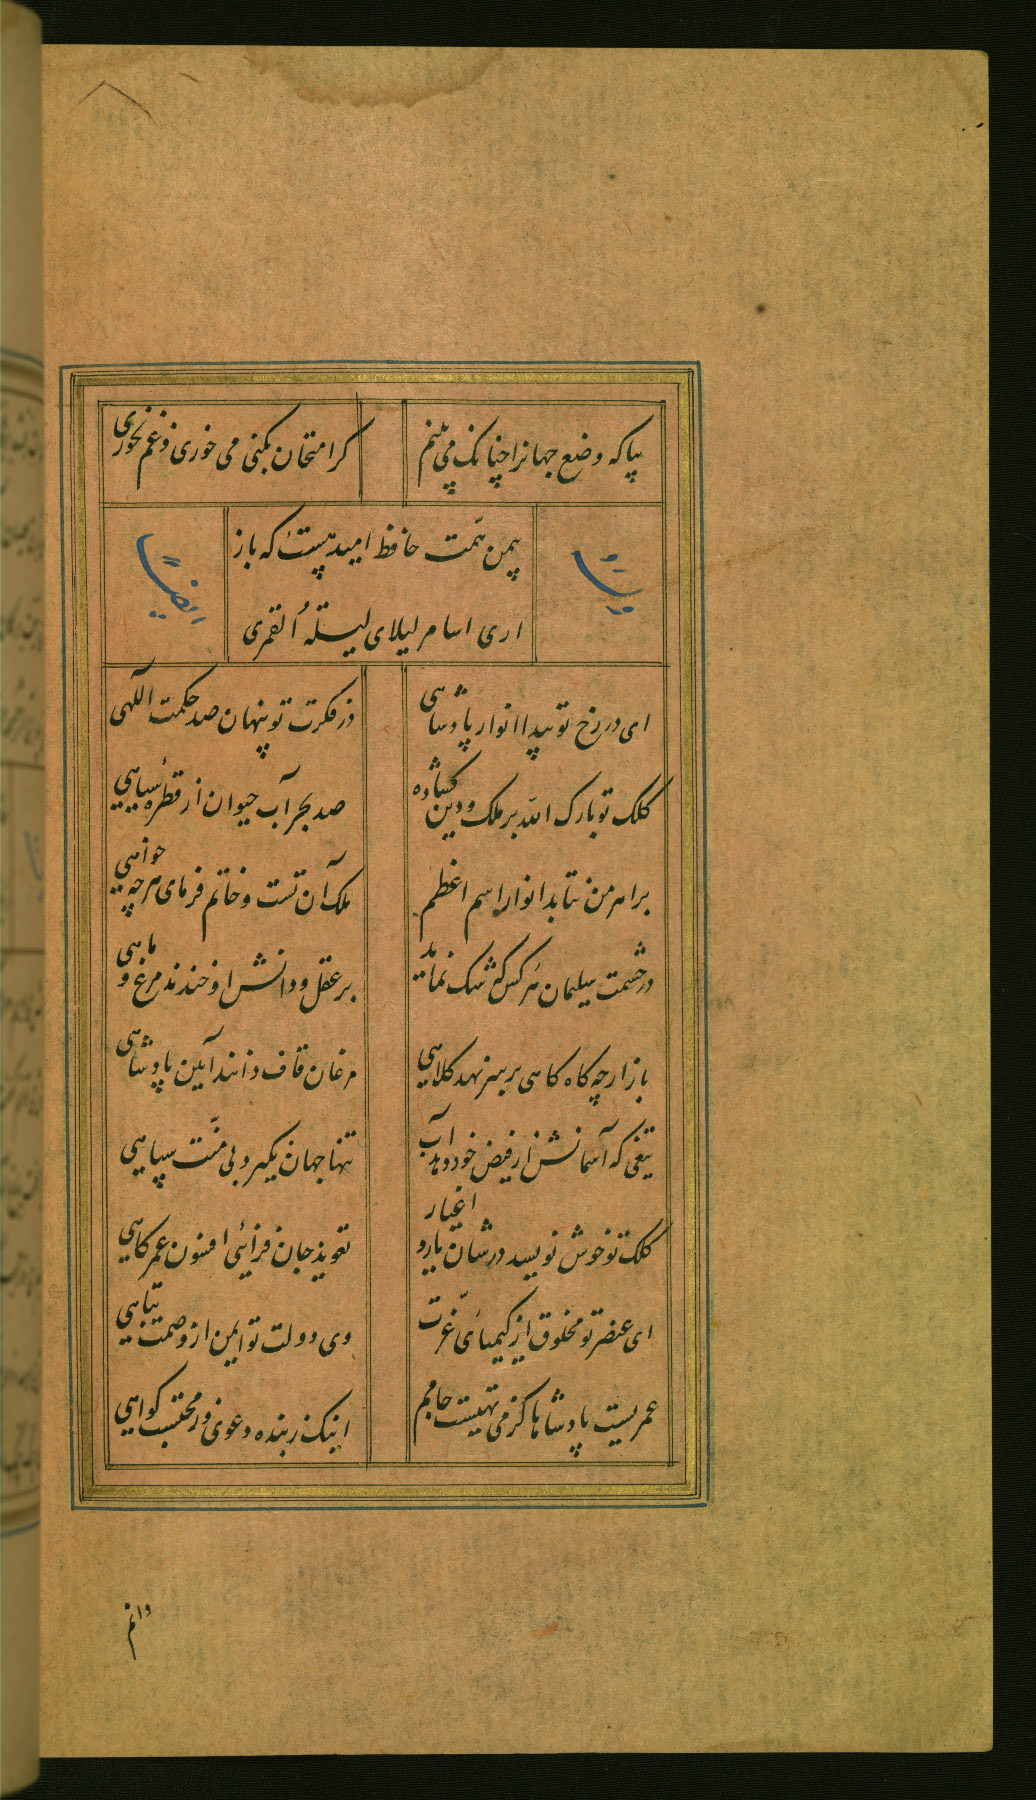 بیا که وضع جهانرا چنانک می بینم
کر امتحان بکنی می خوری و غم نخوری
بیمن همت حافظ امید هست که باز
اری اسامر لیلای لیلة القمری
وله
ایضاً
ای در رخ تو پیدا انوار پادشاهی
در فکرت تو پنهان صد حکمت اللهی
کلک تو بارک الله بر ملک و دین کشاده
صد بحر آب حیوان از قطره سیاهی
بر اهرمن نتابد انوار اسم اعظم
ملک آن تست و خاتم فرمای هرچه خواهی
در حشمت سلیمان هر کس که شک نماید
بر عقل و دانش او خندند مرغ و ماهی
باز ارچه کاه کاهی بر سر نهد کلاهی
مرغان قاف دانند آیین پادشاهی
تیغی که آسمانش از فیض خود دهد آب
تنها جهان بکیرد بی منّت سپاهی
کلک تو خوش نویسد در شان یار و اغیار
تعویذ جان فزائی افسون عمر کاهی
ای عنصر تو مخلوق از کیمیای عزّت
وی دولت تو ایمن از وصمت تباهی
عمریست پادشاها کز می تهیست جامم
اینک ز بنده دعوی وز محتسب کواهی
دانم